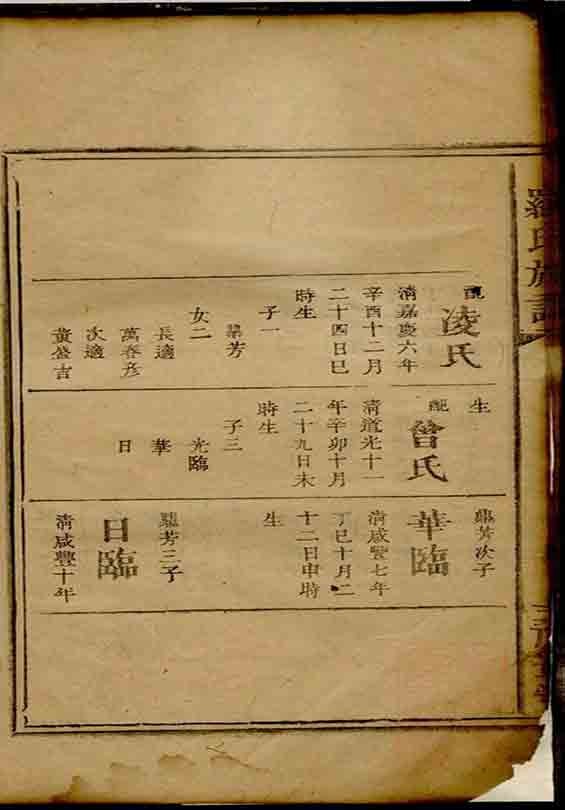 羅氏族譜
配凌氏
清嘉慶六年
辛酉十二月
二十四日巳
時生
子一
芳
女二
長適
萬春彦
次適
黃盛吉
生
配曾氏
清道光十一
年辛卯十月
二十九日未
時生
子三
光臨
華
日
芳次子
華臨
清咸豐七年
丁巳十月二
十二日申時
生
芳三子
日臨
清咸豐十年